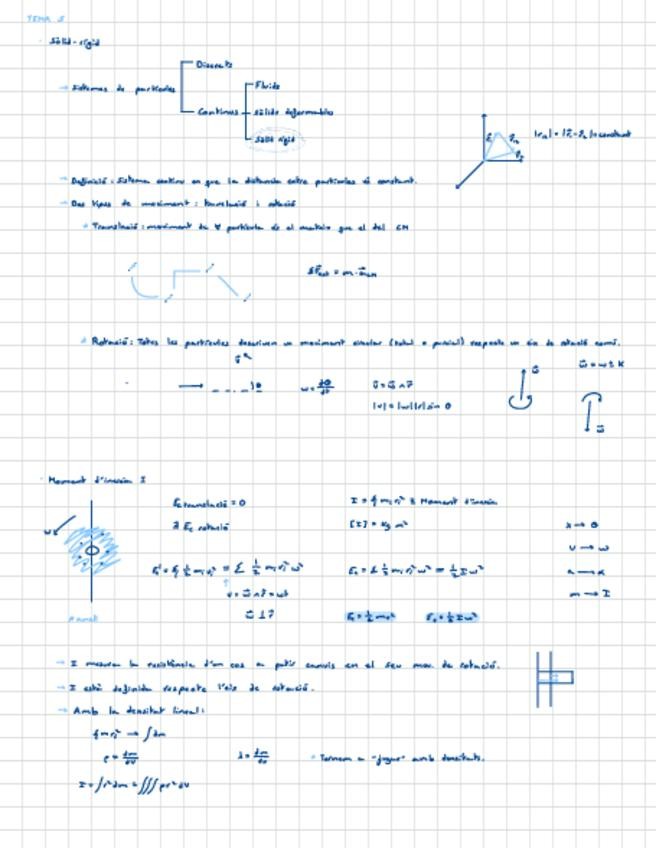 TEMA 5
Sòlid-rígid
→ Sistemes de partícules
Discrets
Continus
Fluids
sòlids deformables
Sòlid rígid
|r₁₂| = |r⃗₁-r⃗₂| = constant
→ Definició: Sistema continu en que la distancia entre partícules és constant.
→ Dos tipus de moviment: translació i rotació
Translació: moviment de ∀ partícula és el mateix que el del CM
ΣF⃗ext = m·a⃗CM
Rotació: Totes les partícules descriuen un moviment circular (total o parcial) respecte un eix de rotació comú.
ω = dθ/dt
v⃗ = ω⃗ ∧ r⃗
ω⃗ = ω ± k
|v| = |ω||r| sin θ
Moment d'inèrcia I
Ec translació = 0
I = Σ miri² ≡ Moment d'inèrcia
∃ Ec rotació
[I] = kg m²
x → θ
v → ω
Ec = Σ ½ mivi² = Σ ½ miri² ω²
Ec = Σ ½ miri² ω² = ½ I ω²
a → α
m → I
ω⃗ ⊥ r⃗
Ec = ½ mv²
Ec = ½ I ω²
→ I mesura la resistència d'un cos a patir canvis en el seu mov. de rotació.
→ I està definida respecte l'eix de rotació.
→ Amb la densitat lineal:
Σ miri² → ∫ dm
ρ = dm/dV
λ = dm/dx
Tornem a "jugar" amb densitats.
I = ∫ r² dm = ∭ ρr² dV